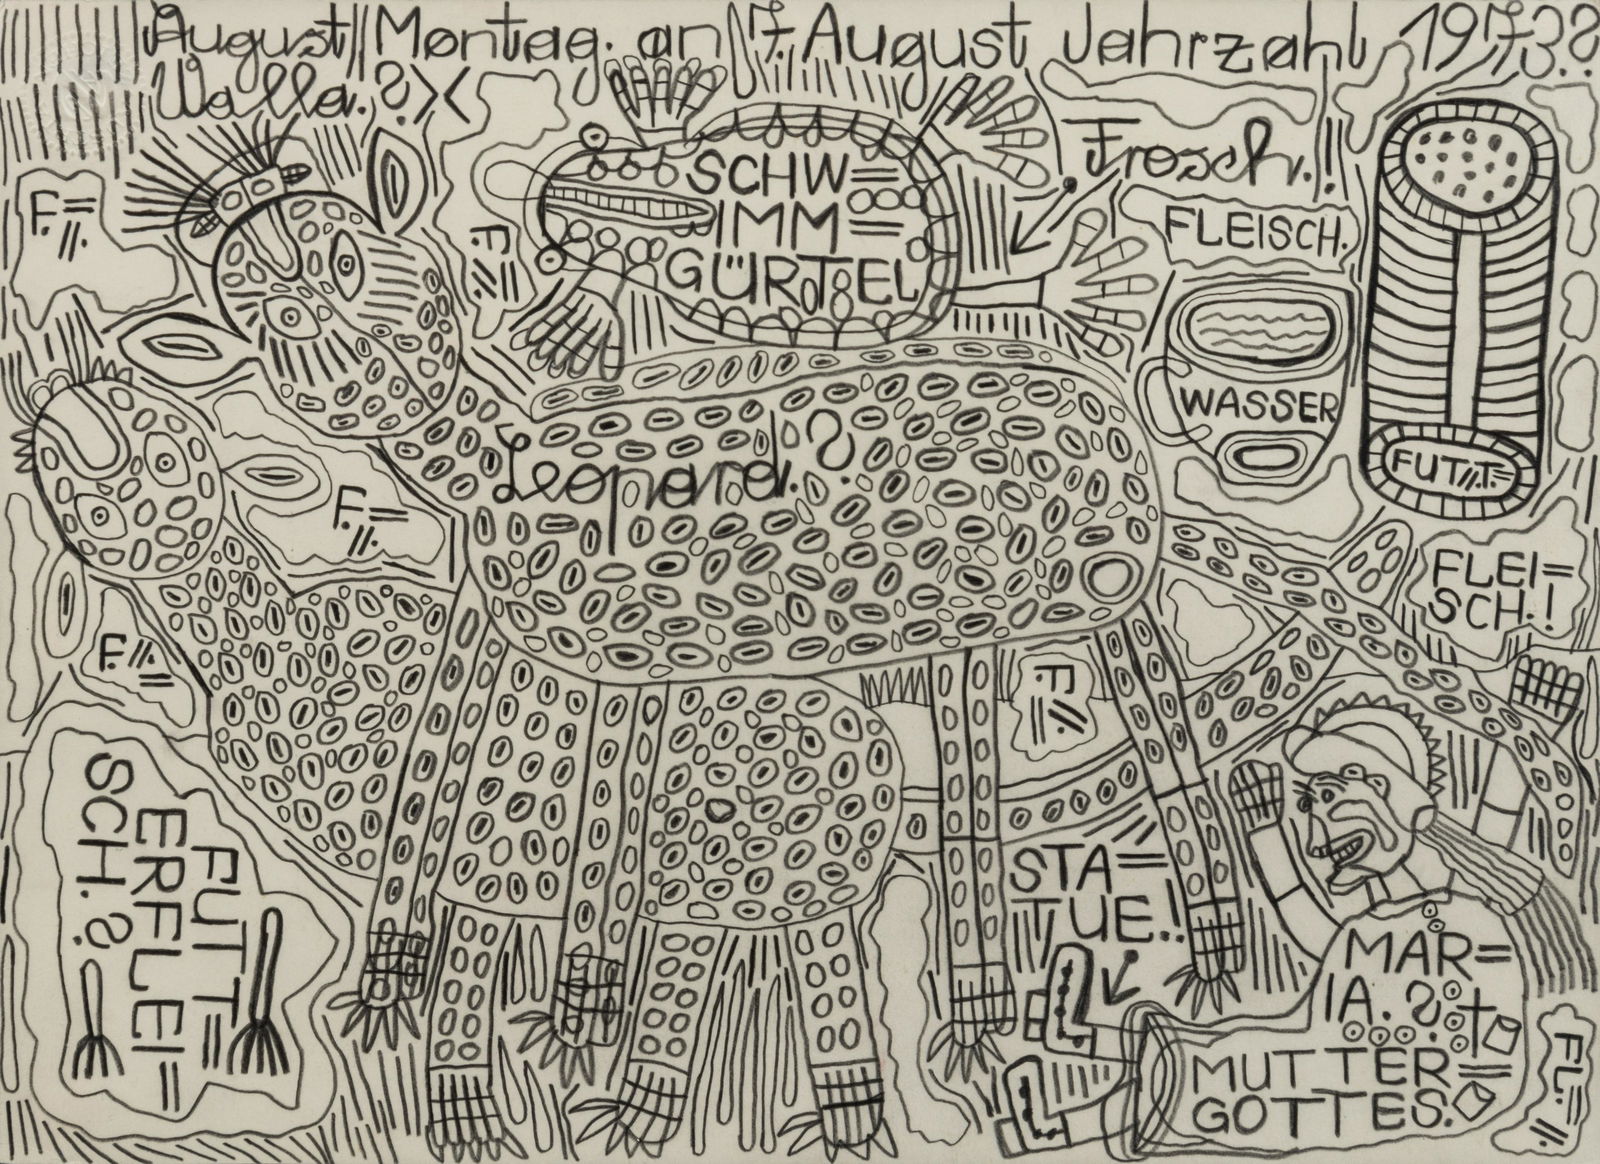 August Montag. an 7. August Jahrzahl 1973.?
Walla.?
SCHW=
IMM=
GÜRTEL
Frosch.!
FLEISCH.
WASSER
FUT.//.T.=
F.=//.
F.=//.
F.=//.
F.=//.
F.=//.
Leopard.?
FLEI=
SCH.!
FUTT=
ERFLEI=
SCH.?
STA=
TUE.!
MAR=
IA.?
MUTTER=
GOTTES.
FL.=//.